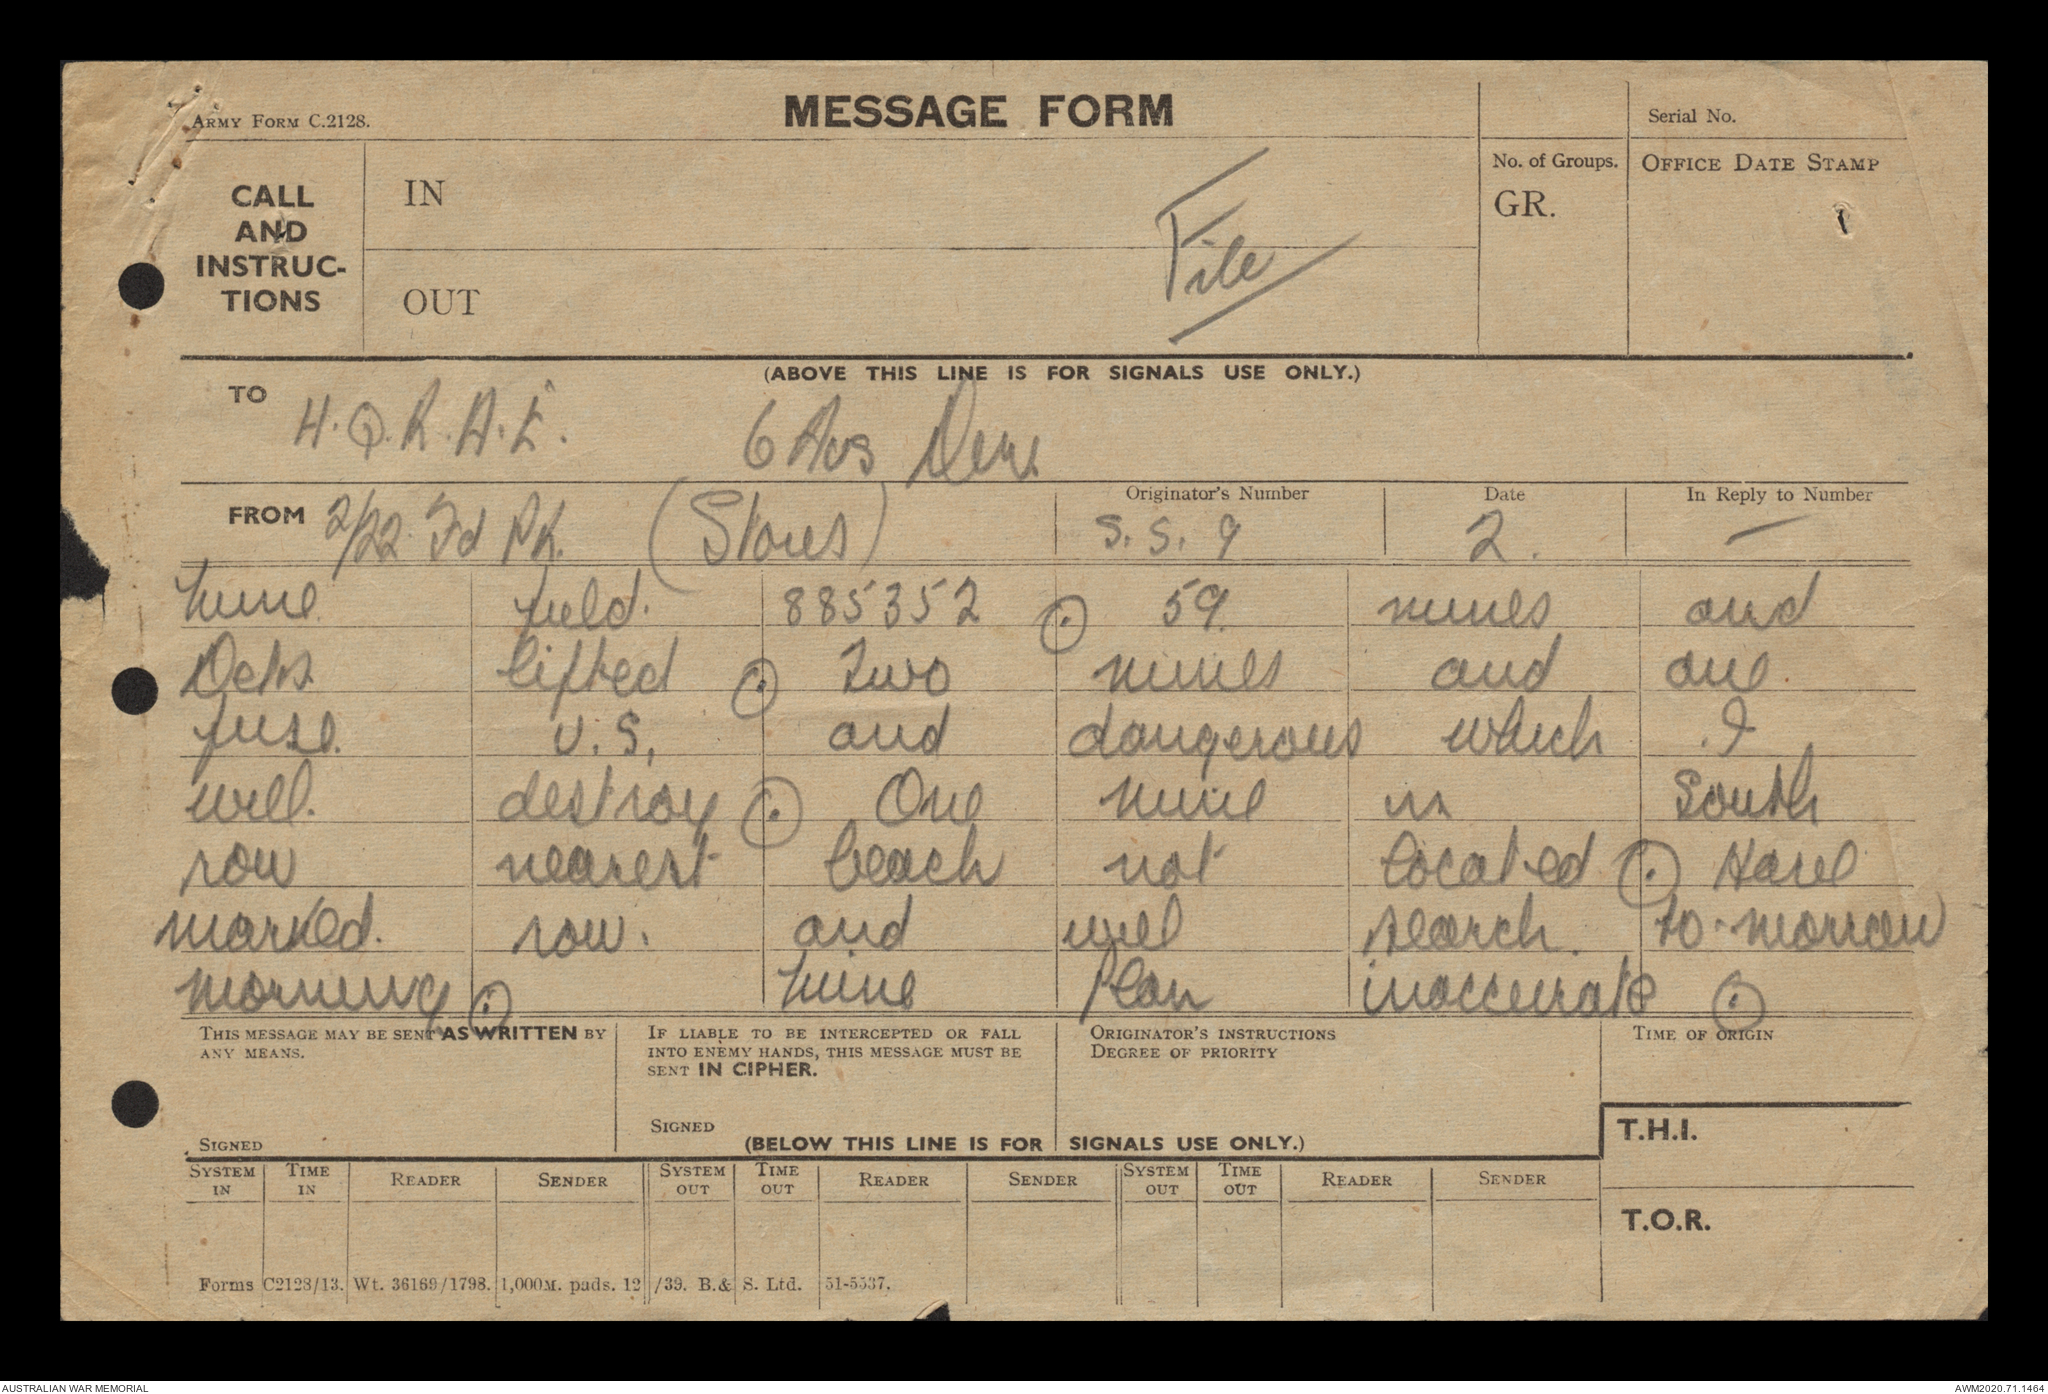 ARMY FORM C.2128.
MESSAGE FORM
Serial No.
CALL
AND
INSTRUC-
TIONS
IN
OUT
File
No. of Groups.
GR.
OFFICE DATE STAMP
(ABOVE THIS LINE IS FOR SIGNALS USE ONLY.)
TO H.Q.R.A.E. 6 Aus Div.
FROM 2/22 Fd Pk. (Stores)
Originator's Number S.S. 9
Date 2.
In Reply to Number —
Mine field. 885352 ⊙ 59 mines and
Dets. lifted ⊙ Two mines and one
fuse. U.S. and dangerous which I
will. destroy ⊙ One mine in South
row nearest beach not located ⊙ Have
marked. row. and will search. to-morrow
morning ⊙ Mine Plan inaccurate ⊙
THIS MESSAGE MAY BE SENT AS WRITTEN BY
ANY MEANS.
SIGNED
IF LIABLE TO BE INTERCEPTED OR FALL
INTO ENEMY HANDS, THIS MESSAGE MUST BE
SENT IN CIPHER.
SIGNED
ORIGINATOR'S INSTRUCTIONS
DEGREE OF PRIORITY
TIME OF ORIGIN
(BELOW THIS LINE IS FOR SIGNALS USE ONLY.)
T.H.I.
T.O.R.
SYSTEM IN TIME IN READER SENDER SYSTEM OUT TIME OUT READER SENDER SYSTEM OUT TIME OUT READER SENDER
Forms C2128/13. Wt. 36169/1798. 1,000M. pads. 12/39. B.& S. Ltd. 51-5537.
AUSTRALIAN WAR MEMORIAL
AWM2020.71.1464